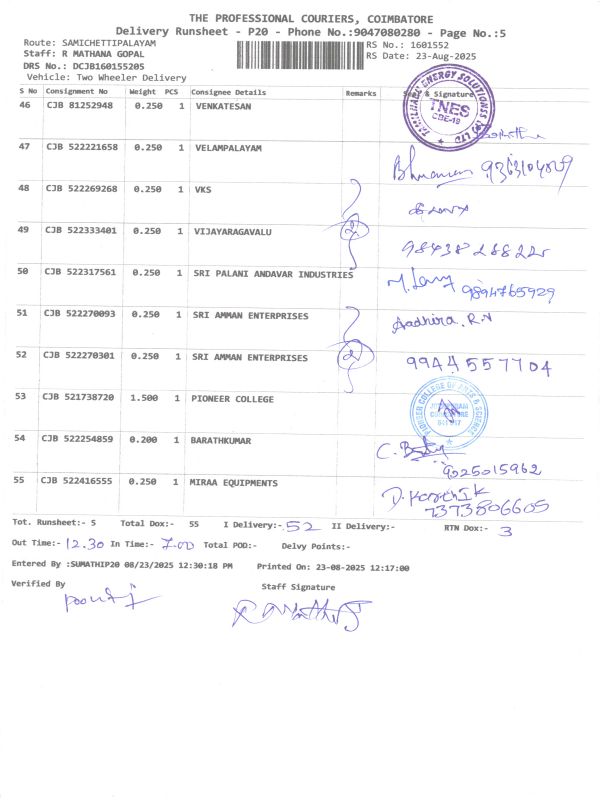 THE PROFESSIONAL COURIERS, COIMBATORE
Delivery Runsheet - P20 - Phone No.:9047080280 - Page No.:5
Route: SAMICHETTIPALAYAM RS No.: 1601552
Staff: R MATHANA GOPAL RS Date: 23-Aug-2025
DRS No.: DCJB160155205
Vehicle: Two Wheeler Delivery
S No Consignment No Weight PCS Consignee Details Remarks & Signature
46 CJB 81252948 0.250 1 VENKATESAN
TAMILNADU ENERGY SOLUTIONSS (P) LTD
TNES
CBE-19
47 CJB 522221658 0.250 1 VELAMPALAYAM
48 CJB 522269268 0.250 1 VKS
49 CJB 522333401 0.250 1 VIJAYARAGAVALU 2
50 CJB 522317561 0.250 1 SRI PALANI ANDAVAR INDUSTRIES 9894765929
51 CJB 522270093 0.250 1 SRI AMMAN ENTERPRISES Aadhira. R.N
52 CJB 522270301 0.250 1 SRI AMMAN ENTERPRISES 2 9944557704
53 CJB 521738720 1.500 1 PIONEER COLLEGE
PIONEER COLLEGE OF ARTS & SCIENCE
54 CJB 522254859 0.200 1 BARATHKUMAR
9025015962
55 CJB 522416555 0.250 1 MIRAA EQUIPMENTS D. Karthik
7373806605
Tot. Runsheet:- 5 Total Dox:- 55 I Delivery:- 52 II Delivery:- RTN Dox:- 3
Out Time:- 12.30 In Time:- 7.00 Total POD:- Delvy Points:-
Entered By :SUMATHIP20 08/23/2025 12:30:18 PM Printed On: 23-08-2025 12:17:00
Verified By Staff Signature